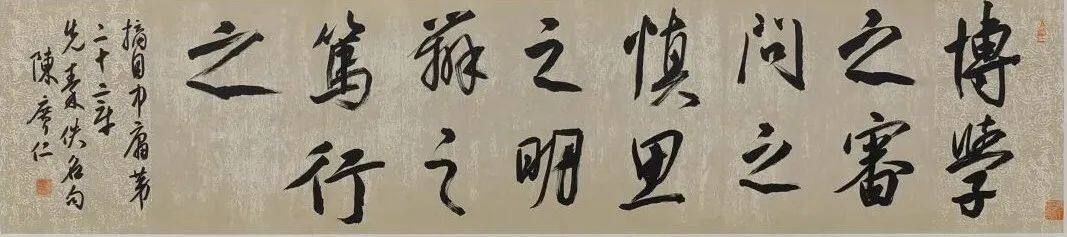 博學
之審
問之
慎思
之明
辨之
篤行
之
摘自中庸第
二十二章
先秦佚名句
陳仁